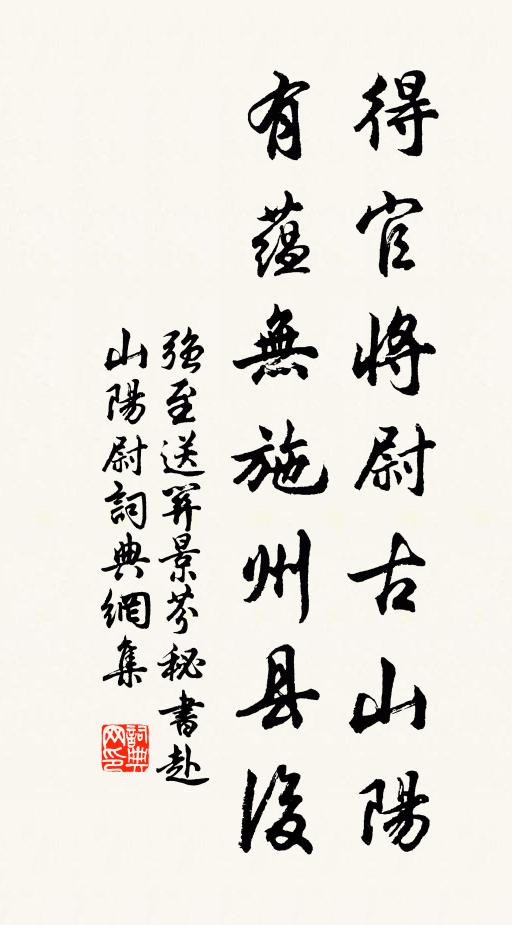 得官将尉古山陽
有蘊無施州县後
強至送羿景芬秘書赴
山陽尉詞典網集
詞典网印